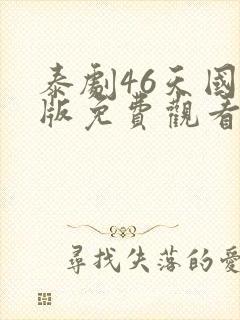 泰劇46天國
版免費觀看
尋找失落的愛